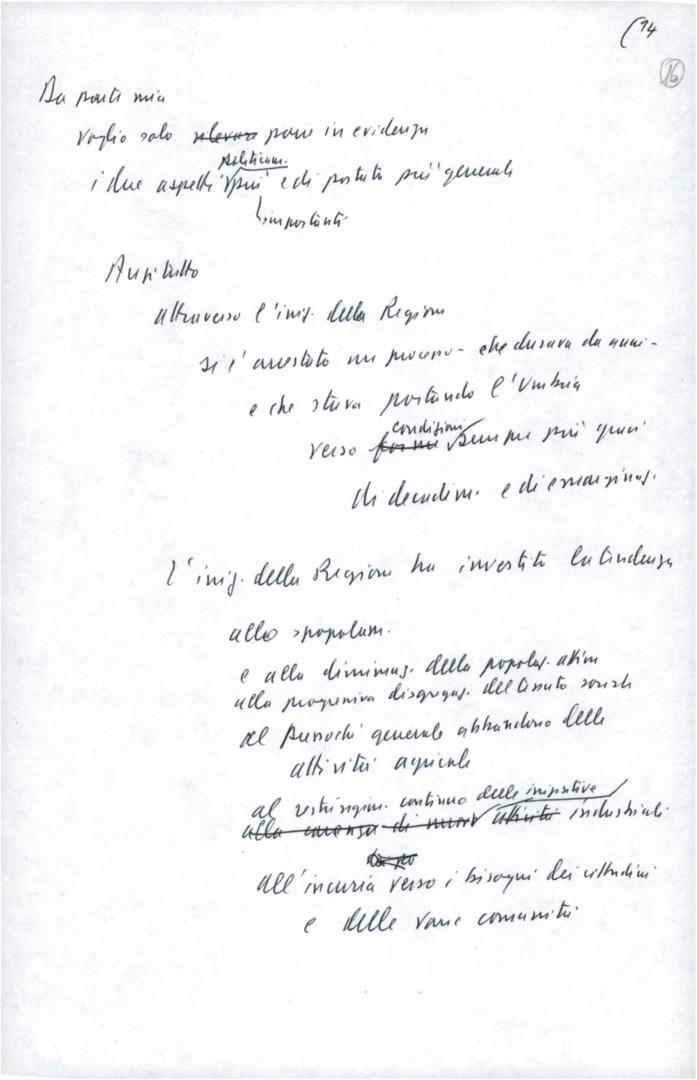 (14
16
Da parte mia
voglio solo rilevare porre in evidenza
politicam.
i due aspetti più e di portata più generale
importanti
Anzitutto
attraverso l'iniz. della Regione
si è arrestato un processo - che durava da anni -
e che stava portando l'Umbria
condizioni
verso forme sempre più gravi
di decadim. e di emarginaz.
L'iniz. della Regione ha investito la tendenza
allo spopolam.
e alla diminuz. della popolaz. attiva
alla progressiva disgregaz. del tessuto sociale
al pressoché generale abbandono delle
attività agricole
al restringim. continuo delle iniziative
alla carenza di nuove attività industriali
all'incuria verso i bisogni dei cittadini
e delle varie comunità